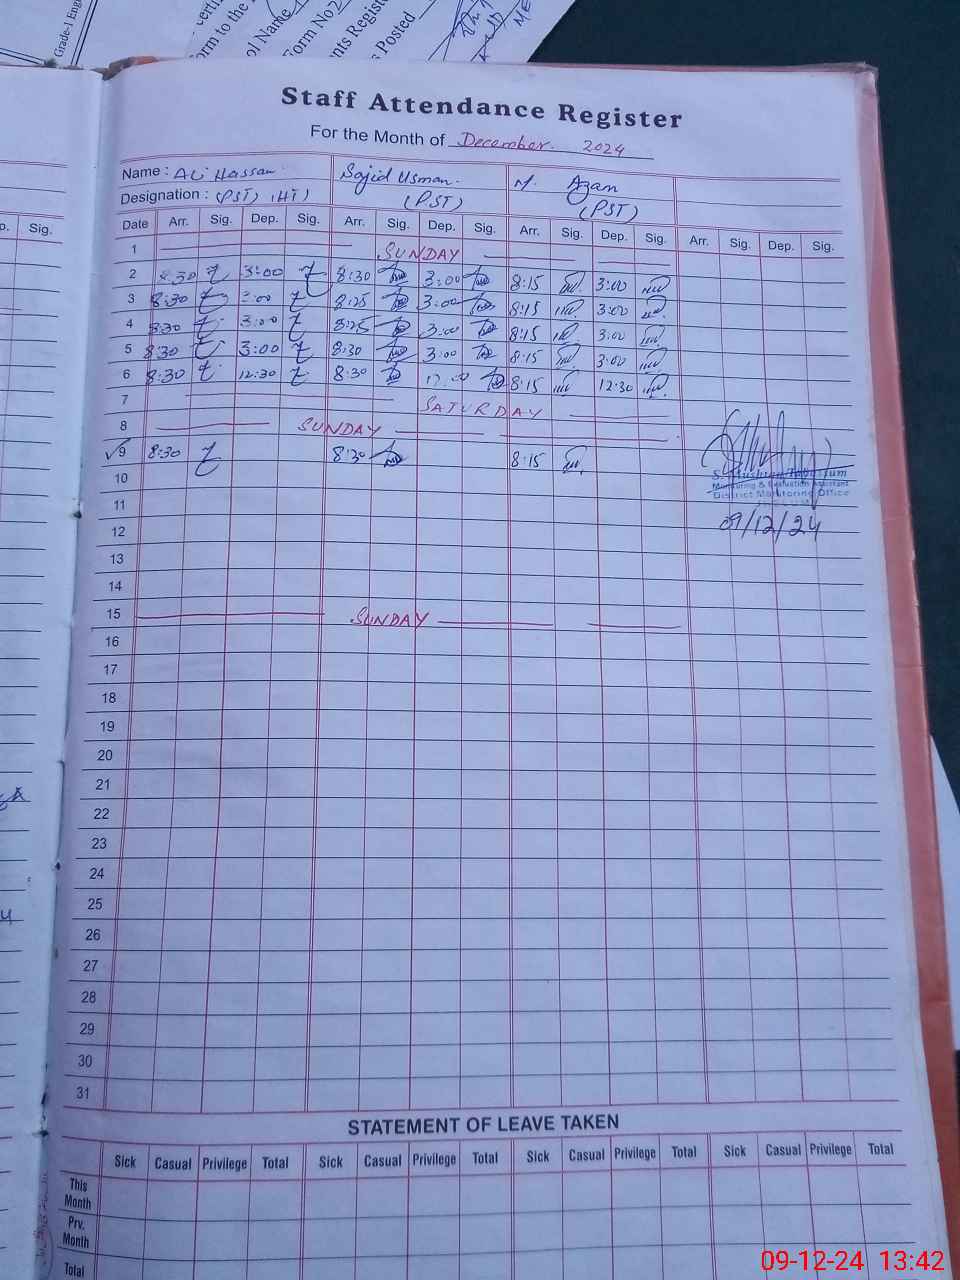 Grade-1 Eng
orm to the
ol Name
Form No2
nts Regist
s Posted
ME
Staff Attendance Register
For the Month of December. 2024
Name : Ali Hassan Sajid Usman. M. Azam
Designation : (PST, HT) (PST) (PST)
p. Sig.
Date Arr. Sig. Dep. Sig. Arr. Sig. Dep. Sig. Arr. Sig. Dep. Sig. Arr. Sig. Dep. Sig.
1 SUNDAY
2 8:30 3:00 8:30 3:00 8:15 3:00
3 8:30 3:00 8:25 3:00 8:15 3:00
4 8:30 3:00 8:25 3:00 8:15 3:00
5 8:30 3:00 8:30 3:00 8:15 3:00
6 8:30 12:30 8:30 8:15 12:30
7 SATURDAY
8 SUNDAY
9 8:30 8:30 8:15
10
Monitoring & Evaluation Assistant
District Monitoring Office
11
09/12/24
12
13
14
15 SUNDAY
16
17
18
19
20
21
22
23
24
25
26
27
28
29
30
31
STATEMENT OF LEAVE TAKEN
Sick Casual Privilege Total Sick Casual Privilege Total Sick Casual Privilege Total Sick Casual Privilege Total
This
Month
Prv.
Month
Total
09-12-24 13:42